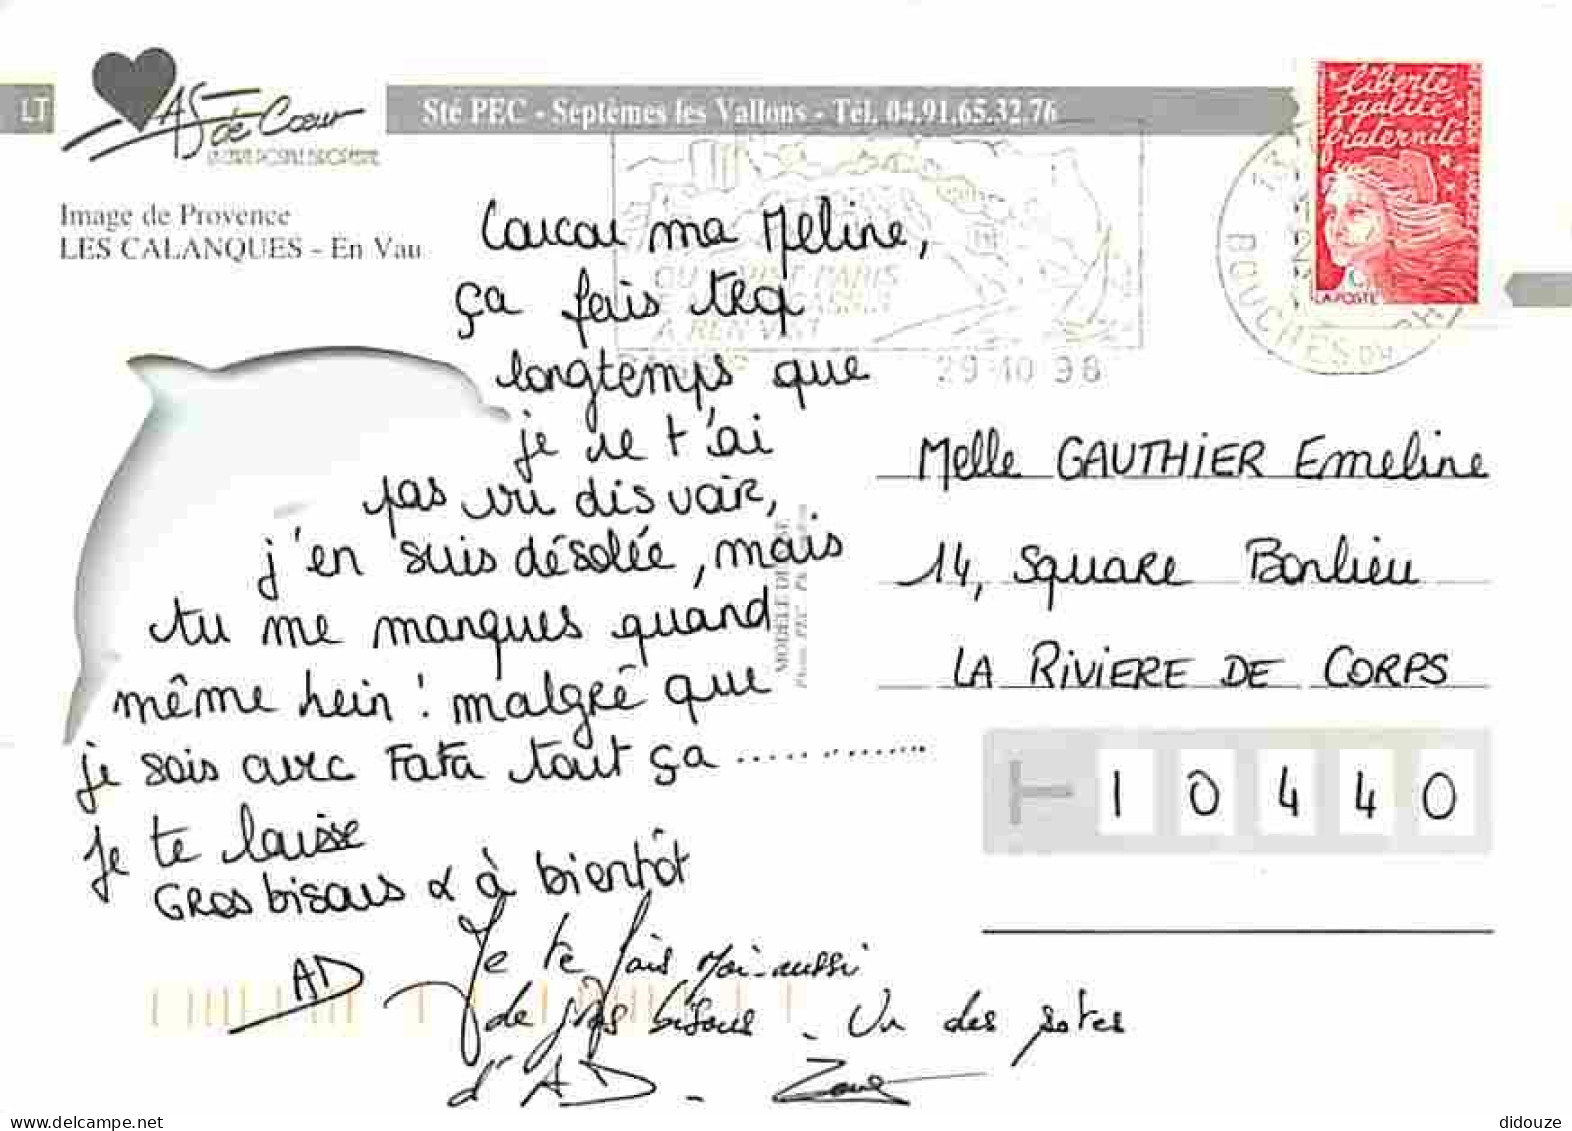 LT
AS de Cœur
Sté PEC - Septèmes les Vallons - Tél. 04.91.65.32.76
liberté
égalité
fraternité
LA POSTE
Image de Provence
LES CALANQUES - En Vau
QU A VIST PARIS
A REN VIST
29 10 98
BOUCHES DU RH
Coucou ma Meline,
ça fais trop
longtemps que
je ne t'ai
pas vu dis voir,
j'en suis désolée, mais
tu me manques quand
même hein ! malgré que
je sois avec Fafa tout ça ..............
Je te laisse
Gros bisous & à bientôt
AD
Je te fais moi-aussi
de gros bisous - Un des potes
d'AD -
MODÈLE DE
Photo PEC
Melle GAUTHIER Emeline
14, square Bonlieu
LA RIVIERE DE CORPS
10440
didouze